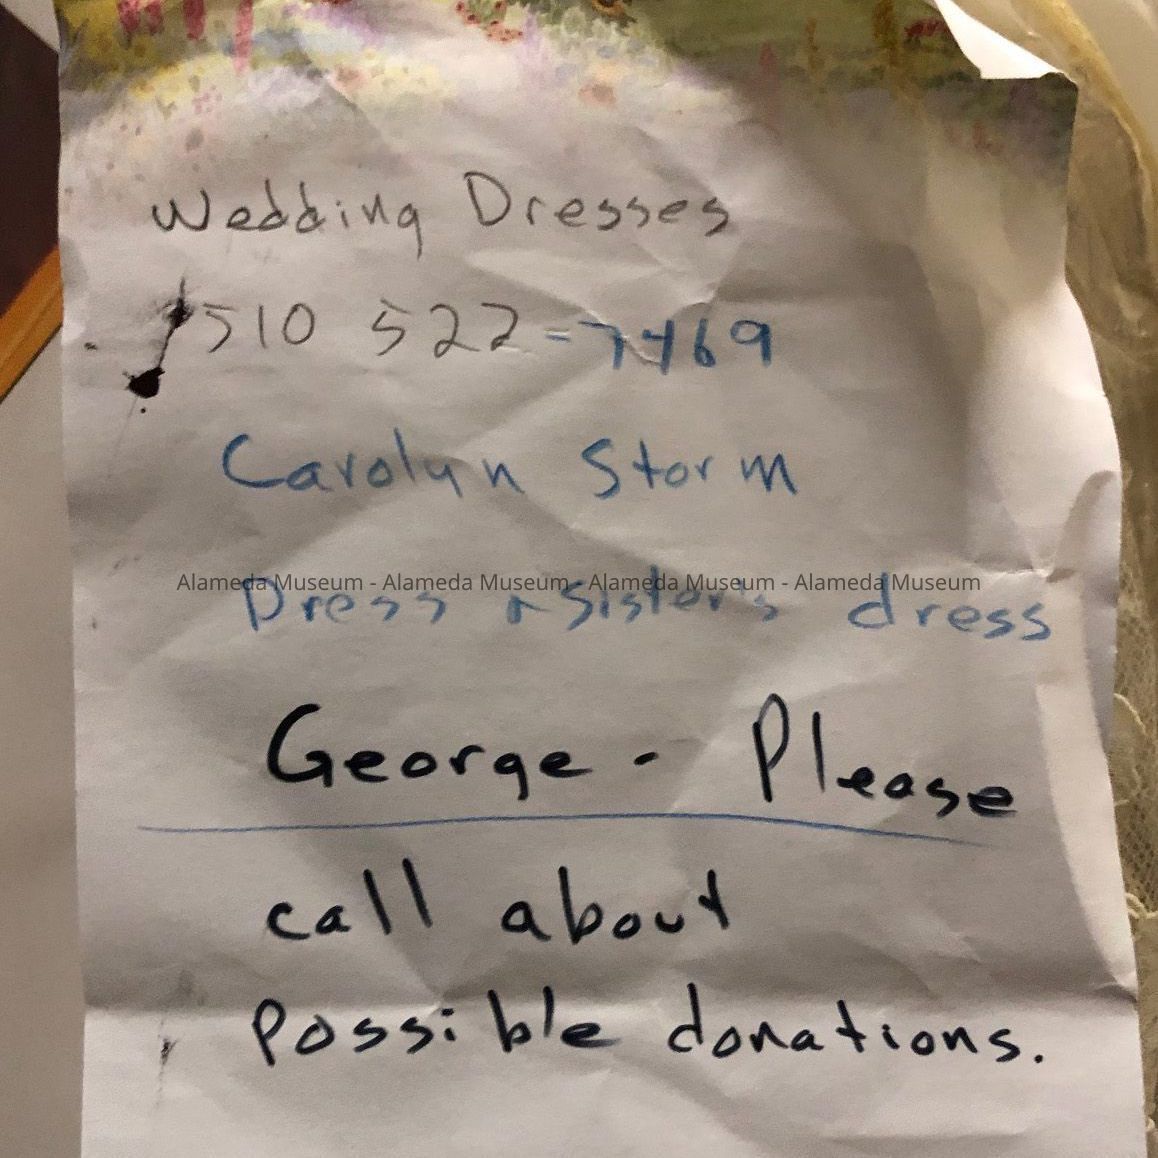 Wedding Dresses
510 522-7469
Carolyn Storm
Alameda Museum - Alameda Museum - Alameda Museum - Alameda Museum
Dress & Sister's dress
George - Please
call about
Possible donations.